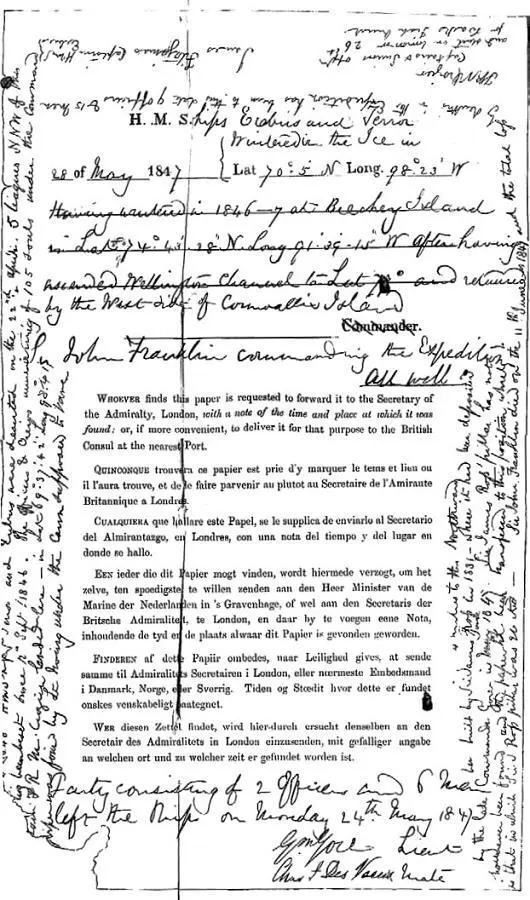 H. M. Ships Erebus and Terror
Wintered in the Ice in
28 of May 1847 { Lat 70° 5' N Long. 98° 23' W
Having wintered in 1846–7 at Beechey Island
in Lat 74° 43' 28" N. Long 91° 39' 15" W After having
ascended Wellington Channel to Lat 77° and returned
by the West side of Cornwallis Island
Commander.
John Franklin commanding the Expedition
All well
WHOEVER finds this paper is requested to forward it to the Secretary of
the Admiralty, London, with a note of the time and place at which it was
found: or, if more convenient, to deliver it for that purpose to the British
Consul at the nearest Port.
QUINCONQUE trouvera ce papier est prie d'y marquer le tems et lieu ou
il l'aura trouve, et de le faire parvenir au plutot au Secretaire de l'Amiraute
Britannique a Londres.
CUALQUIERA que hallare este Papel, se le suplica de enviarlo al Secretario
del Almirantazgo, en Londrés, con una nota del tiempo y del lugar en
donde se hallo.
EEN ieder die dit Papier mogt vinden, wordt hiermede verzogt, om het
zelve, ten spoedigste, te willen zenden aan den Heer Minister van de
Marine der Nederlanden in 's Gravenhage, of wel aan den Secretaris der
Britsche Admiraliteit, te London, en daar by te voegen eene Nota,
inhoudende de tyd en de plaats alwaar dit Papier is gevonden geworden.
FINDEREN af dette Papiir ombedes, naar Leilighed gives, at sende
samme til Admiralitets Secretairen i London, eller nærmeste Embedsmand
i Danmark, Norge, eller Sverrig. Tiden og Stœdit hvor dette er fundet
önskes venskabeligt paategnet.
WER diesen Zettel findet, wird hier-durch ersucht denselben an den
Secretair des Admiralitets in London einzusenden, mit gefälliger angabe
an welchen ort und zu welcher zeit er gefundet worden ist.
Party consisting of 2 Officers and 6 Men
left the Ships on Monday 24th May 1847
Gm Gore Lieut
Chas F Des Voeux Mate
Terror and Erebus were deserted on the 22nd April 5 leagues NNW of this
having been beset since 12th Sept 1846. The Officers & Crews consisting of 105 souls under the Command
F. R. M. Crozier landed here — in Lat 69° 37' 42" Long 98° 41'
paper was found by Lt Irving under the Cairn supposed to have
been built by Sir James Ross in 1831 — where it had been deposited
4 miles to the Northward
by the late Commander Gore in June 1847. Sir James Ross' pillar has not
however been found and the paper has been transferred to this position which
is that in which Sir J Ross pillar was erected — Sir John Franklin died on the 11th June 1847 and the total loss
by deaths in the Expedition has been to this date 9 officers & 15 men
James Fitzjames Captain HMS
Erebus
F R M Crozier
Captain & Senior Offr
and start on tomorrow 26th
for Backs Fish River